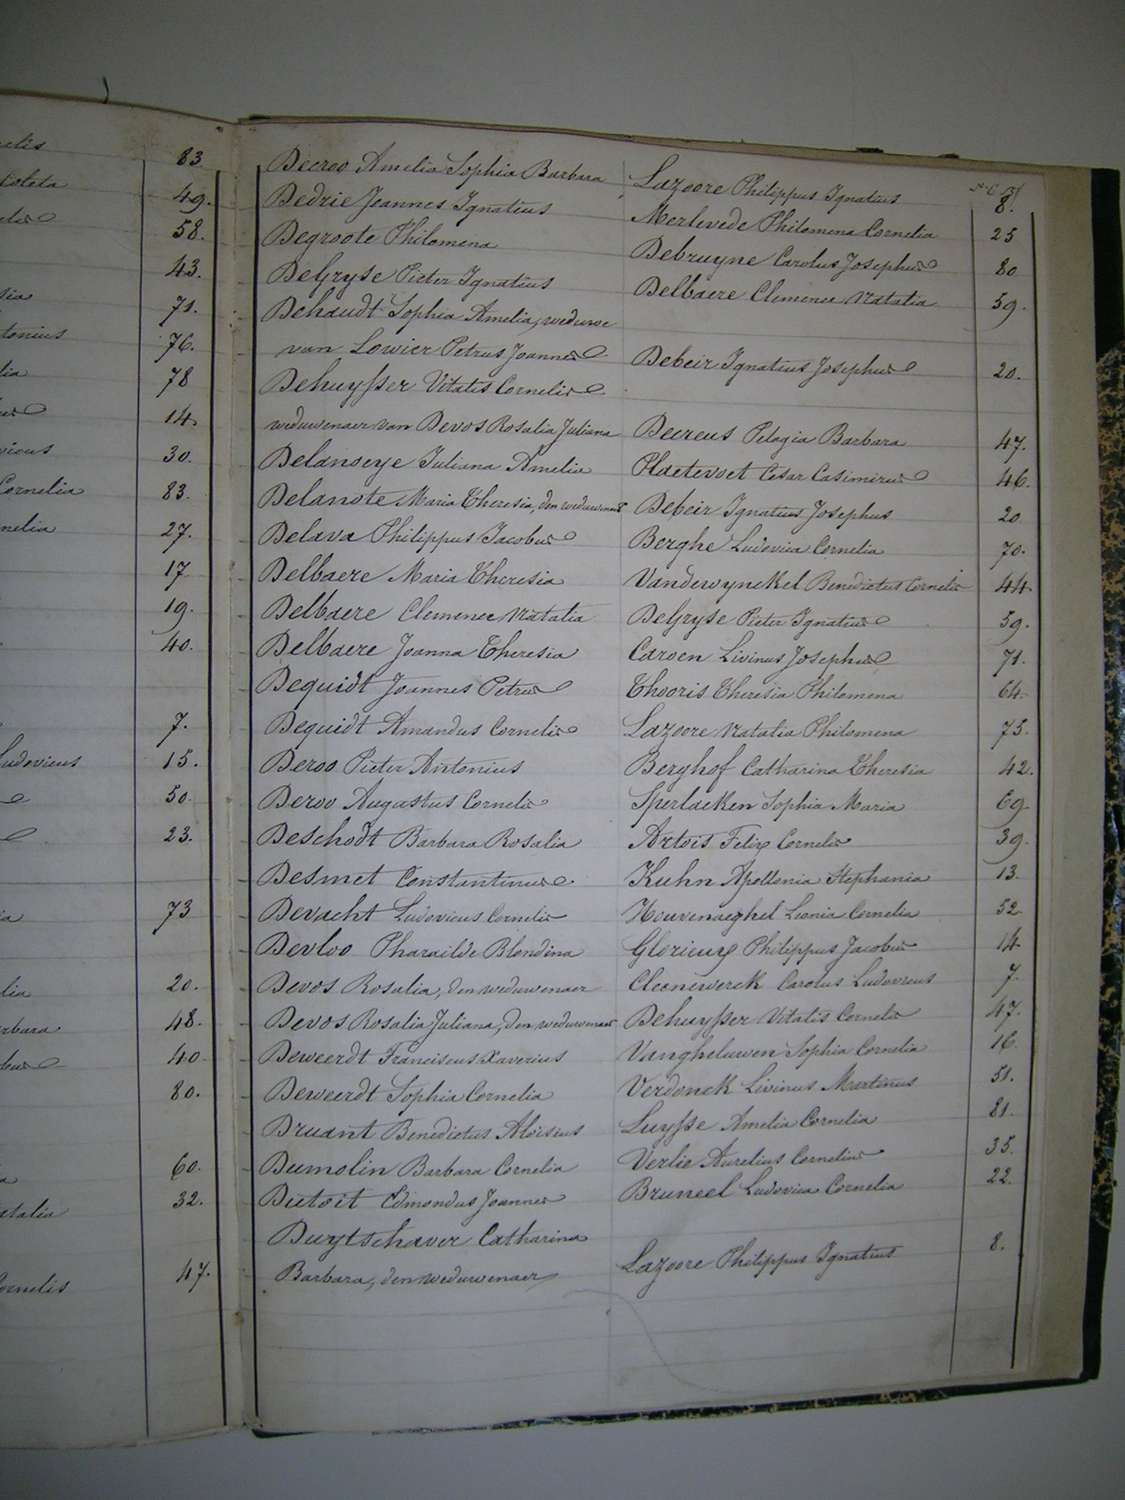 83
49.
58.
43.
71.
76.
78
14.
30.
Cornelia 83.
27.
17
19.
40.
7.
Ludovicus 15.
50.
23.
73
20.
48.
40
80.
60.
32.
47.
Decroo Amelia Sophia Barbara Lazoore Philippus Ignatius 8.
Dedrie Joannes Ignatius Merlevede Philomena Cornelia 25
Degroote Philomena Debruyne Carolus Josephus 80
DeGryse Pieter Ignatius Delbaere Clemence Natalia 59.
Dehaudt Sophia Amelia, weduwe
van Lowier Petrus Joannes Debeir Ignatius Josephus 20.
Dehuysser Vitalis Cornelis
weduwenaer van Devos Rosalia Juliana Decreus Pelagia Barbara 47.
Delanoeye Juliana Amelia Plaetevoet Cesar Casimirus 46.
Delanote Maria Theresia, den weduwenaer Debeir Ignatius Josephus 20
Delava Philippus Jacobus Berghe Ludovica Cornelia 70.
Delbaere Maria Theresia Vandewynckel Benedictus Cornelis 44
Delbaere Clemence Natalia DeGryse Pieter Ignatius 59.
Delbaere Joanna Theresia Caroen Livinus Josephus 71.
Dequidt Joannes Petrus Thooris Theresia Philomena 64.
Dequidt Amandus Cornelis Lazoore Natalia Philomena 75.
Deroo Pieter Antonius Berghof Catharina Theresia 42.
Deroo Augustus Cornelis Sperlaeken Sophia Maria 69.
Deschodt Barbara Rosalia Artois Felix Cornelis 39.
Desmet Constantinus Kuhn Apollonia Stephania 13
Devacht Ludovicus Cornelis Houvenaeghel Leonia Cornelia 52
Devloo Pharailde Blondina Glorieux Philippus Jacobus 14.
Devos Rosalia, den weduwenaer Cleenewerck Carolus Ludovicus 7.
Devos Rosalia Juliana, den weduwenaer Dehuysser Vitalis Cornelis 47.
Deweerdt Franciscus Xaverius Vangheluwen Sophia Cornelia 16.
Deweerdt Sophia Cornelia Verdonck Livinus Martinus 51.
Druant Benedictus Aloisius Luysse Amelia Cornelia 81.
Dumolin Barbara Cornelia Verlie Aurelius Cornelius 35.
Dutoit Edmondus Joannes Bruneel Ludovica Cornelia 22.
Duytschaver Catharina
Barbara, den weduwenaer Lazoore Philippus Ignatius 8.